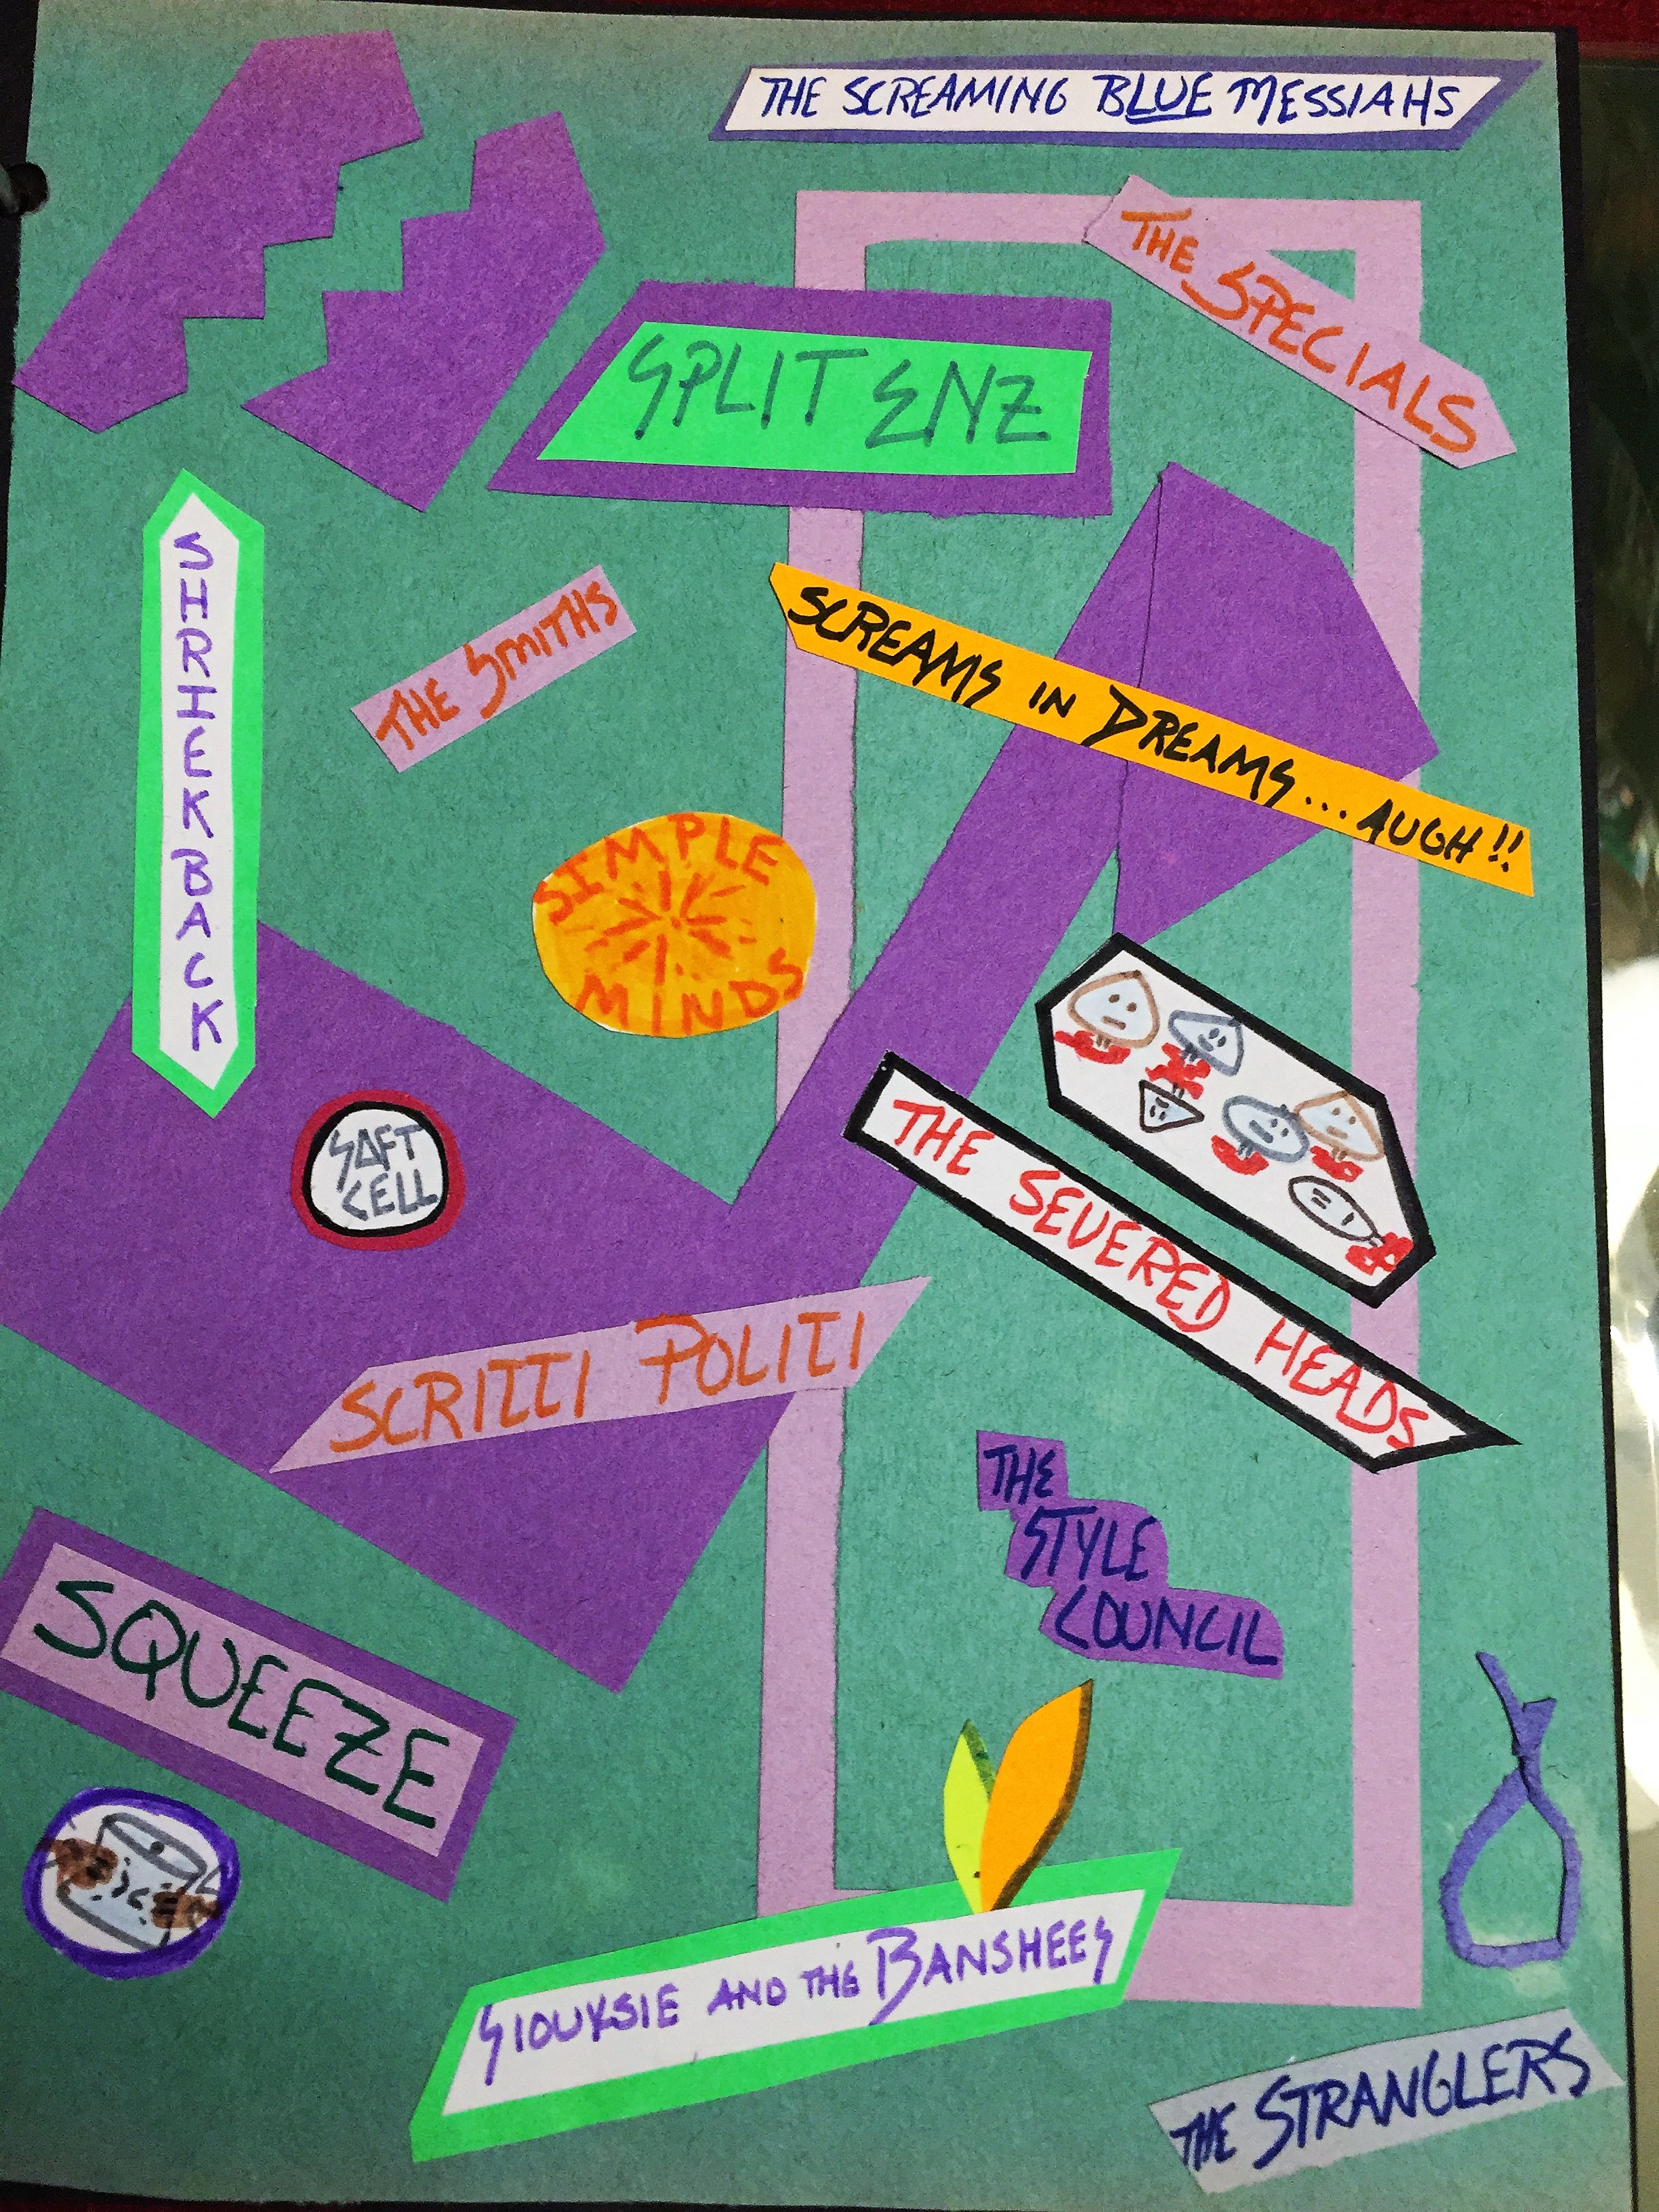 THE SCREAMING BLUE MESSIAHS
THE SPECIALS
SPLIT ENZ
SHRIEKBACK
THE SMITHS
SCREAMS IN DREAMS... AUGH!!
SIMPLE
MINDS
SOFT
CELL
THE SEVERED HEADS
SCRITTI POLITI
THE
STYLE
COUNCIL
SQUEEZE
SIOUXSIE AND THE BANSHEES
THE STRANGLERS